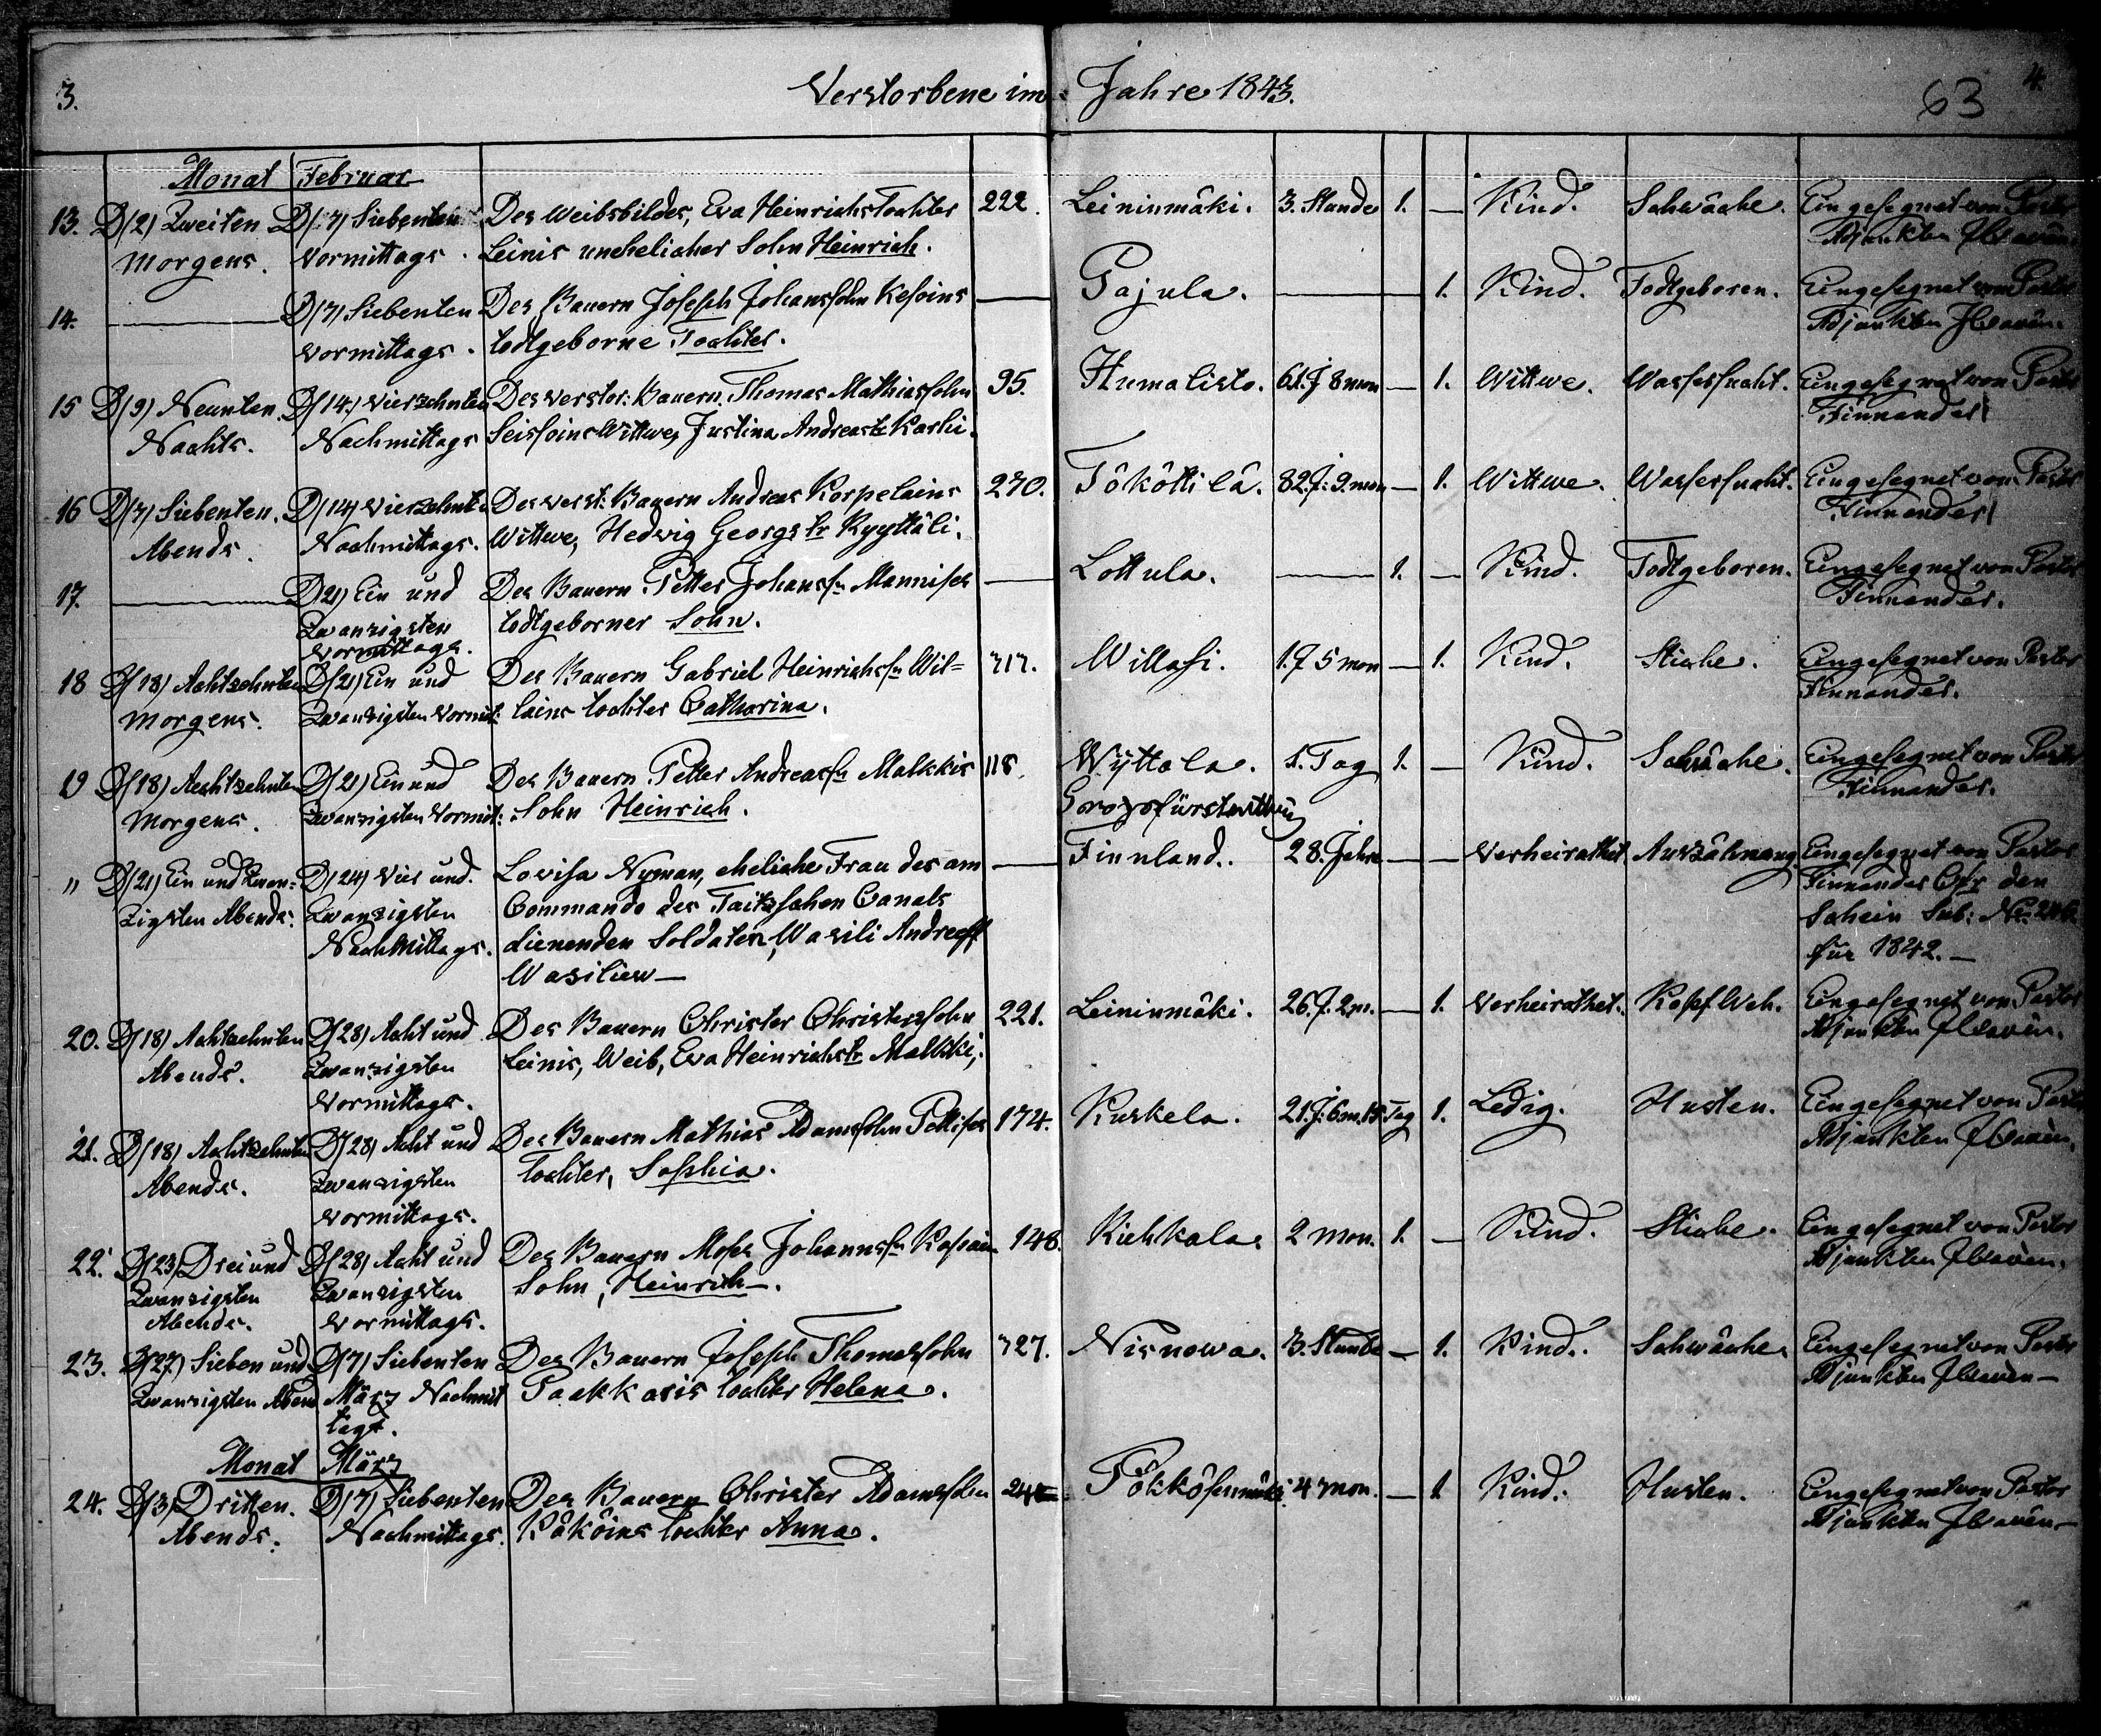 3.
Verstorbene im Jahre 1843.
63
4.
Monat Februar
13. D/2/ Zweiten D/7/ Siebenten Des Weibsbildes, Eva Heinrichs Tochter 222. Leininmäki. 3. Stunde 1. — Kind. Schwäche. Eingesegnet von Pastor
Morgens. Vormittags. Leinis unehelicher Sohn Heinrich. Adjunkten
14. — D/7/ Siebenten Des Bauern Joseph Johanssohn Kesoins — Pajula. — 1. Kind. Todtgeboren. Eingesegnet vom Pastor
Vormittags. todtgeborne Tochter. Adjunkten
15 D/9/ Neunten D/14/ Vierzehnten Des verstor: Bauern Thomas Mathiassohn 95. Humalisto. 61. J 8 mon — 1. Wittwe. Wassersucht. Eingesegnet von Pastor
Nachts. Nachmittags Seissoins Wittwe, Justina Andreastr Karhi. Finnander
16 D/7/ Siebenten. D/14/ Vierzehnte Des verst: Bauern Andreas Korpelains 270. Tököttilä. 82. J: 9. mon — 1. Wittwe. Wassersucht. Eingesegnet von Pastor
Abends. Nachmittags. Wittwe, Hedvig Georgs tr Kyyttäli. Finnander
17. — D/21/ Ein und Des Bauern Petter Johanssn Mannises — Lottula. — 1. — Kind. Todtgeboren. Eingesegnet von Pastor
Zwanzigsten todtgeborner Sohn. Finnander.
Vormittags.
18 D/18/ Achtzehnten D/21/ Ein und Des Bauern Gabriel Heinrichssn Wil= 717. Willasi. 1. J 5 mon — 1. Kind. Stiche. Eingesegnet von Pastor
Morgens. Zwanzigsten Vormit: lains tochter Catharina. Finnander.
19 D/18/ Achtzehnten D/21/ Ein und Des Bauern Petter Andreassn Malkkis 118. Wyttola. 1. Tag 1. — Kind. Schwäche. Eingesegnet von Pastor
Morgens. Zwanzigsten Vormit: Sohn Heinrich. Finnander.
" D/21/ Ein und Zwan= D/24/ Vier und Lovisa Nyman, eheliche Frau des am — Finnland. 28. Jahre — — Verheirathet Auszährung Eingesegnet von Pastor
zigsten Abends. Zwanzigsten Commando des Taitzschen Canals Finnander den
Nachmittags. dienenden Soldaten, Wasili Andreeff Schein Sub: No 246
Wasiliew — für 1842. —
20. D/18/ Achtzehnten D/28/ Acht und Des Bauern Christer Christerssohn 221. Leininmäki. 26. J. 2 m. — 1. Verheirathet. Kopf Weh. Eingesegnet von Pastor
Abends. Zwanzigsten Leinis, Weib, Eva Heinrichstr Malkki. Adjunkten
Vormittags.
21. D/18/ Achtzehnten D/28/ Acht und Des Bauern Mathias Adamssohn Pellises 174. Kuskela. 21. J: 6 m. 15 Tag 1. Ledig. Husten. Eingesegnet von Pastor
Abends. Zwanzigsten tochter, Sophia. Adjunkten
Vormittags.
22. D/23/ Drei und D/28/ Acht und Des Bauern Moses Johannssn 148. Kiehkala. 2 mon. 1. — Kind. Stiche. Eingesegnet von Pastor
Zwanzigsten Zwanzigsten Sohn, Heinrich. Adjunkten
Abends. Vormittags.
23. D/27/ Sieben und D/7/ Siebenten Des Bauern Joseph Thomassohn 727. Nisnowa. 3. Stunde — 1. Kind. Schwäche. Eingesegnet von Pastor
Zwanzigsten Abend März Nachmit Paakkaris tochter Helena. Adjunkten
tags.
Monat März
24. D/3/ Dritten. D/7/ Siebenten Des Bauern Christer Adamssohn Pökkösenmäki. 4 mon. — 1 Kind. Husten. Eingesegnet von Pastor
Abends. Nachmittags. Kököins tochter Anna. Adjunkten